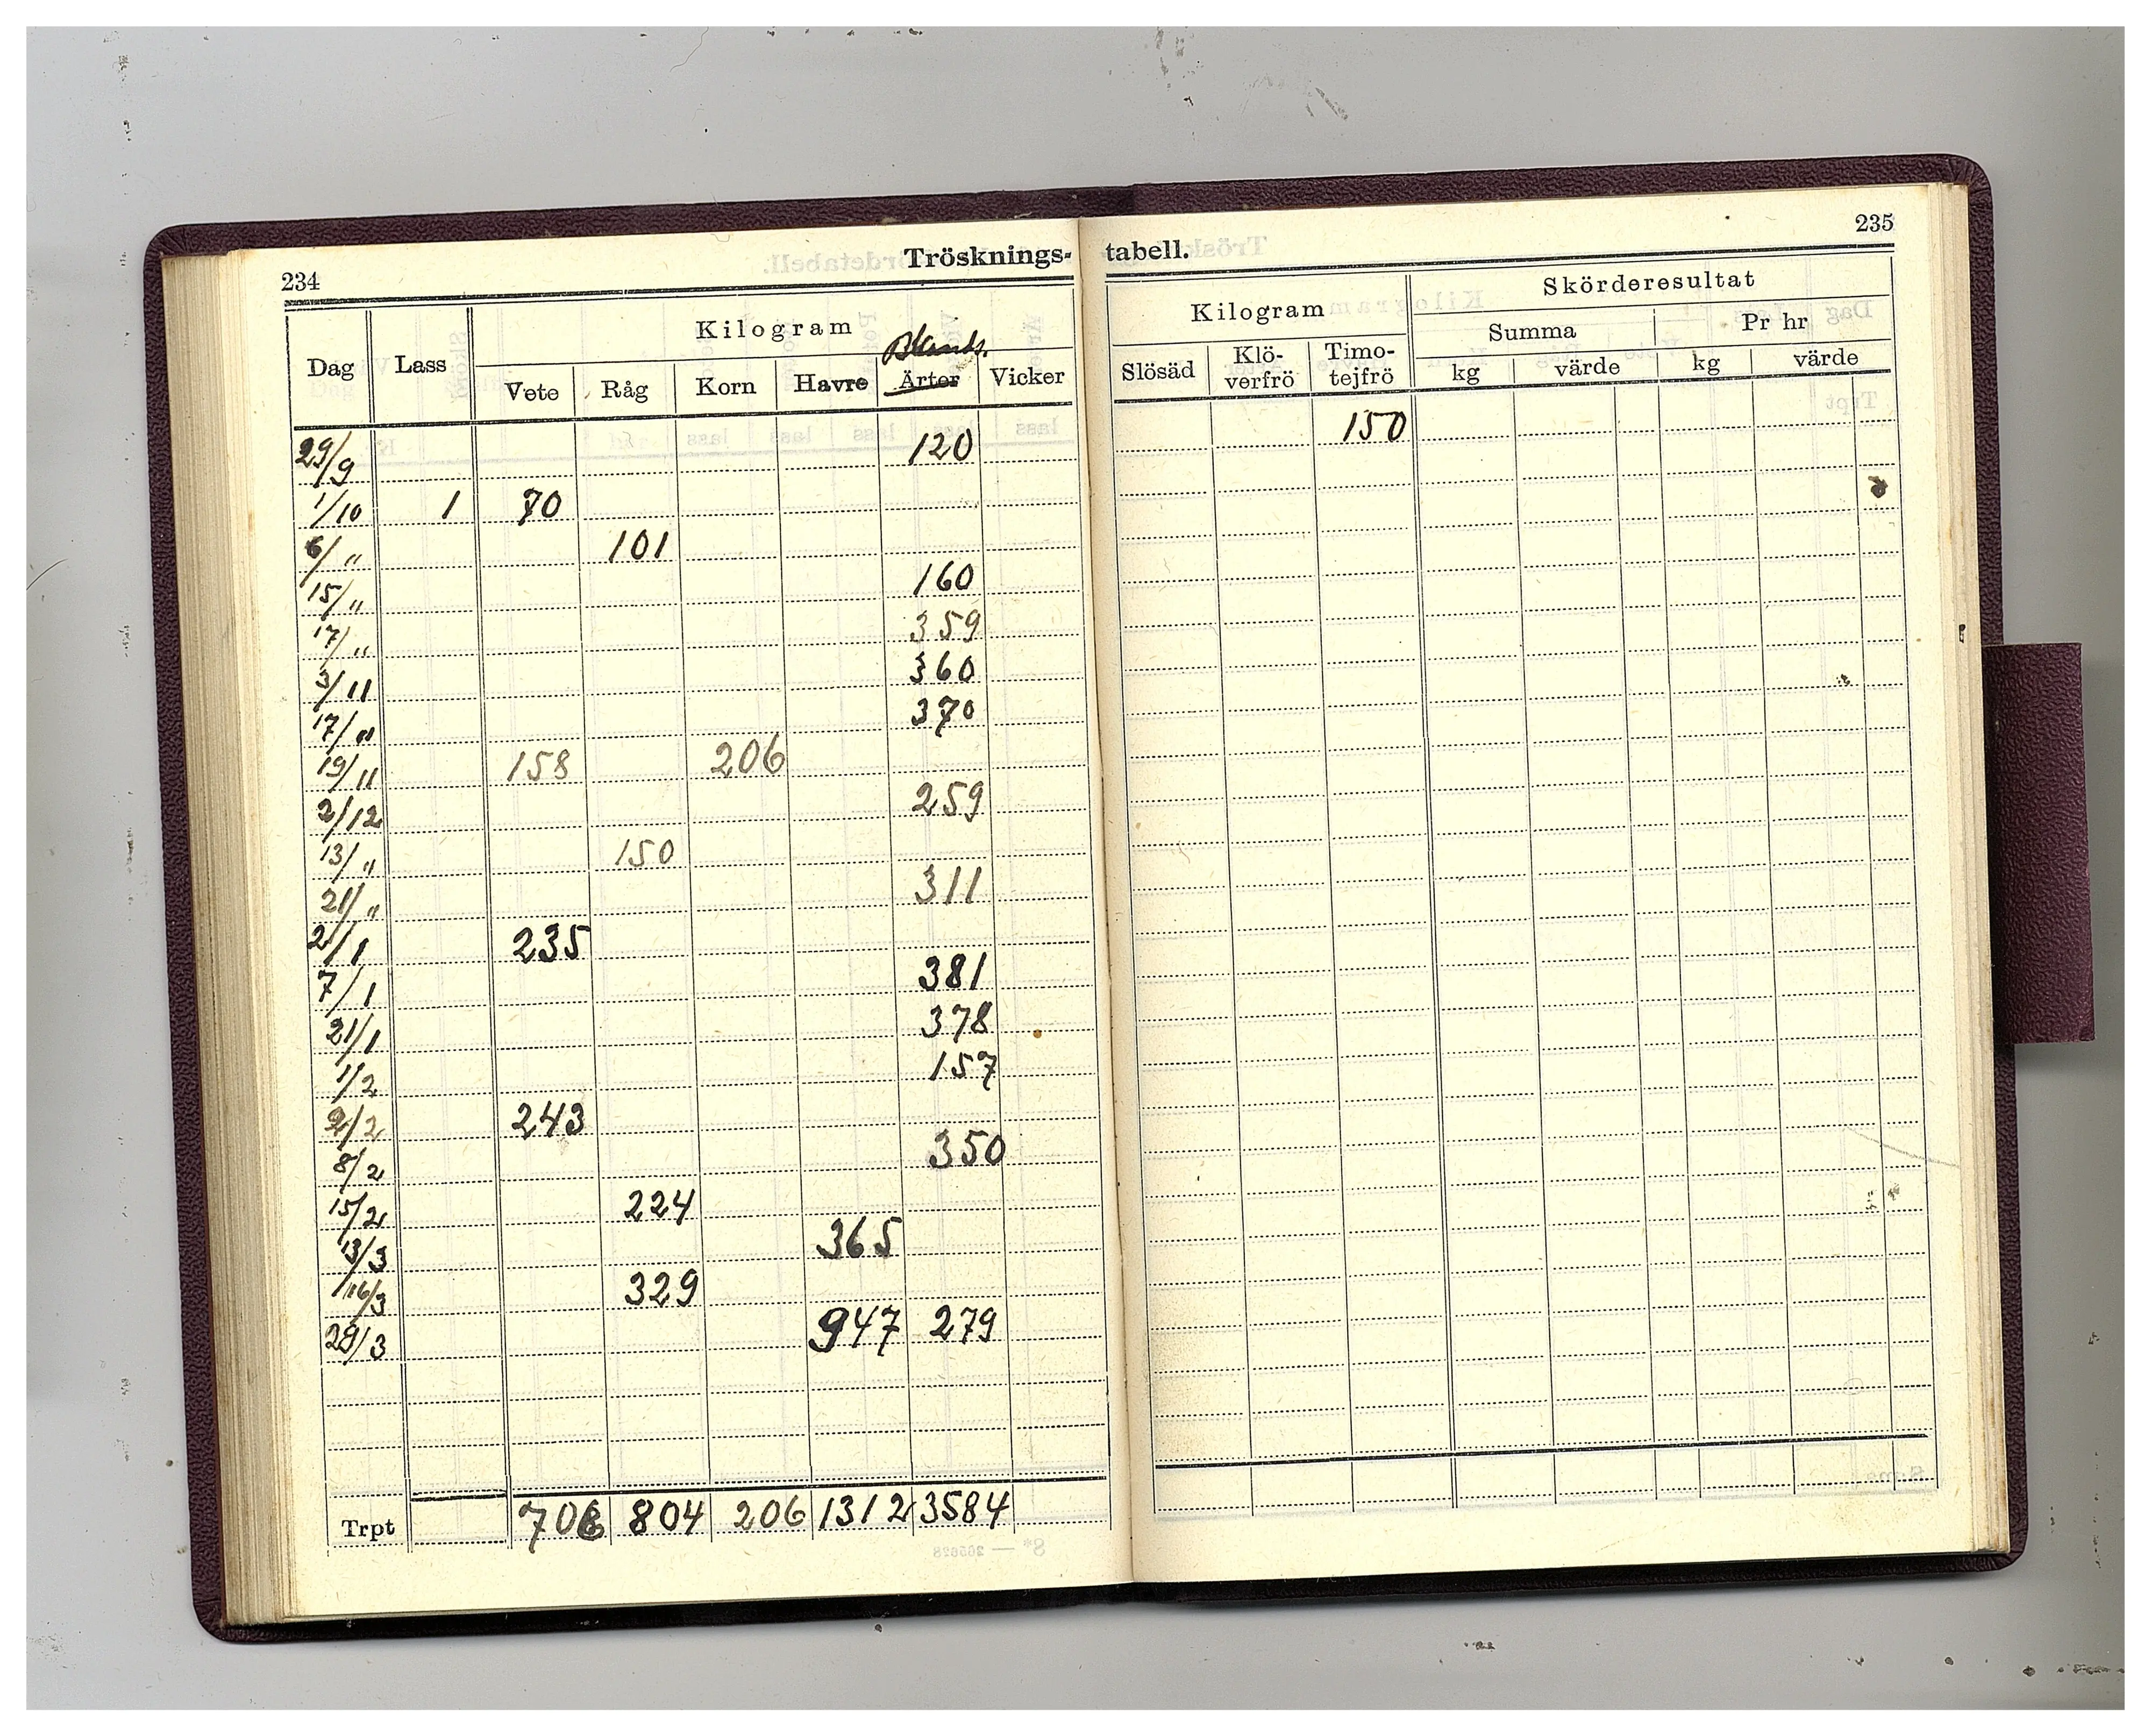 234
Trösknings-
Kilogram
Blands.
Dag Lass Vete Råg Korn Havre Ärter Vicker
29/9 120
1/10 1 70
6/„ 101
15/„ 160
17/„ 359
3/11 360
17/„ 370
19/11 158 206
2/12 259
13/„ 150
21/„ 311
2/1 235
7/1 381
21/1 378
1/2 157
2/2 243
8/2 350
15/2 224
13/3 365
16/3 329
29/3 947 279
Trpt 706 804 206 1312 3584
235
tabell.
Kilogram Skörderesultat
Summa Pr hr
Slösäd Klö- Timo- kg värde kg värde
verfrö tejfrö
150